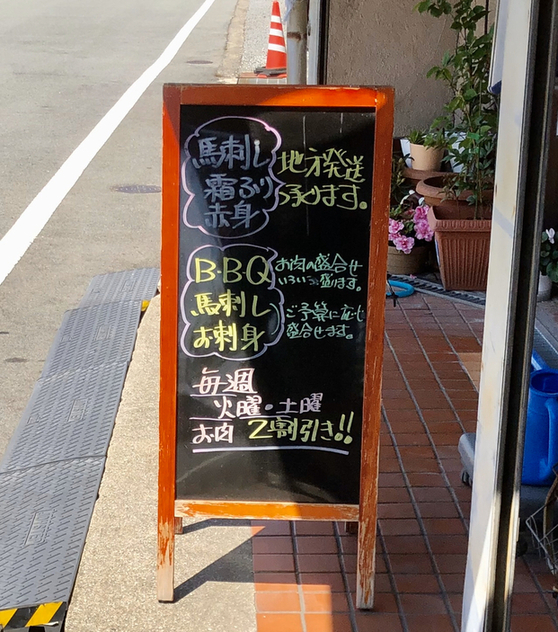 馬刺し
霜ふり
赤身
地方発送
承ります。
B・B・Q
馬刺し
お刺身
お肉の盛合せ
いろいろ盛ります。
ご予算に応じ
盛合せます。
毎週
火曜・土曜
お肉 2割引き!!